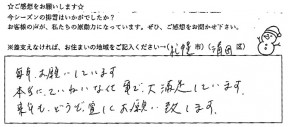 ☆ご感想をお願いします☆
今シーズンの排雪はいかがでしたか？
お客様の声が、私たちの原動力になっています。ぜひ、ご感想をお聞かせ下さい。
※差支えなければ、お住まいの地域をご記入ください→(札幌市)(清田区)
毎年お願いしています
本当にていねいな仕事で、大満足しています。
来年も、どうぞ宜しくお願い致します。